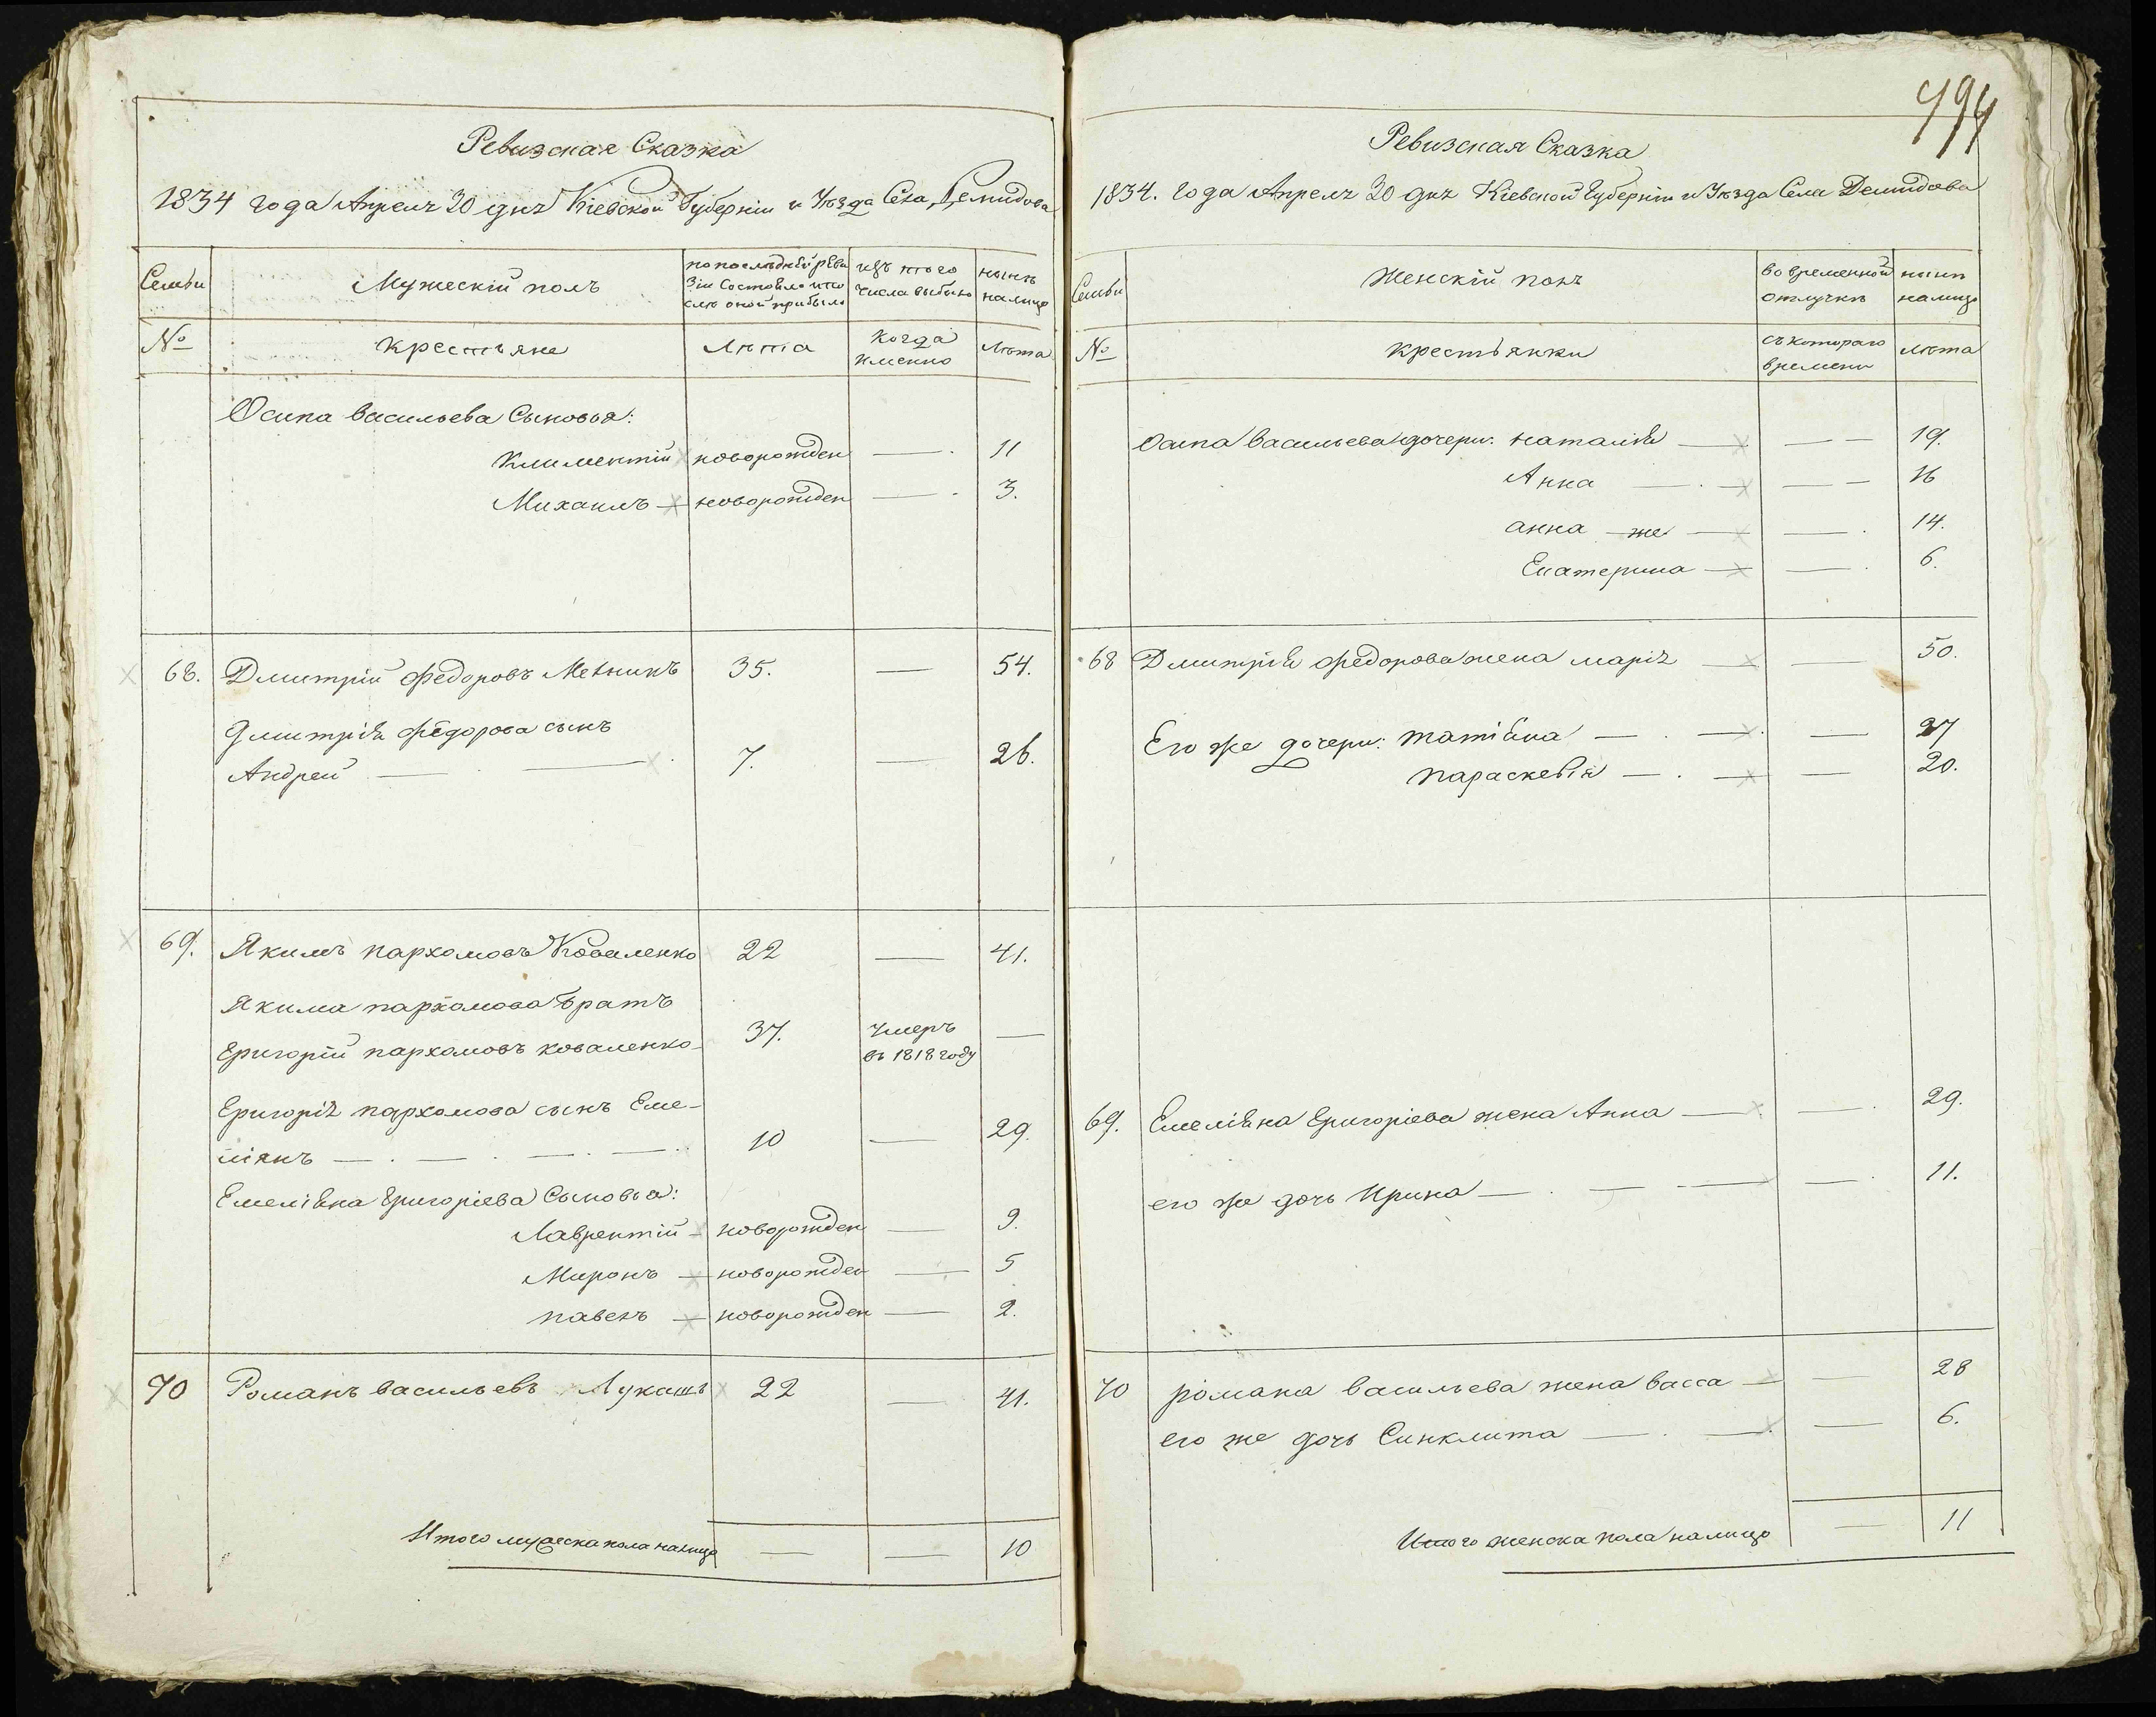 Ревизская Сказка
1834 года Апреля 30 дня Кіевской Губерніи и Уѣзда Села Демидова
Семьи
Мужескій полъ
по послѣдней реви
зіи Состояло и по
слѣ оной прибыло
изъ того
числа выбыло
нынѣ
налицо
№
крестьяне
Лѣта
когда
именно
Лѣта
Осипа васильева Сыновья:
Климентій новорожден — 11
Михаилъ — новорожден — 3.
68. Дмитрій федоровъ Мельникъ 35. — 54.
Дмитрія федорова сынъ
Андрей — — 7. — 26.
69. Якимъ пархомовъ Коваленко 22 — 41.
Якима пархомова братъ
Григорій пархомовъ коваленко 37. Умеръ
въ 1818 году —
Григорія пархомова сынъ Еме-
ліянъ — . — . — . — 10 — 29.
Емеліяна Григоріева Сыновья:
Лаврентій — новорожден — 9.
Миронъ — новорожден — 5
павелъ — новорожден — 2.
70 Романъ васильевъ Лукашъ 22 — 41.
Итого мужеска пола налицо — — 10
494
Ревизская Сказка
1834. года Апреля 30 дня Кіевской Губерніи и Уѣзда Села Демидова
Семьи
Женскій полъ
во временной
отлучкѣ
нынѣ
налицо
№
крестьянки
съ котораго
времени
лѣта
Осипа васильева дочери: наталія — — 19.
Анна — . — — 16
анна же — — 14.
Екатерина — — 6.
68 Дмитрія федорова жена марія — — 50.
Его же дочери: татіяна — . — — 27
параскевія — . — — 20.
69. Емеліяна Григоріева жена Анна — — 29.
его же дочь Ирина — . — — — 11.
70 романа васильева жена васса — — 28
его же дочь Синклита — . — — 6.
Итого женска пола налицо — 11